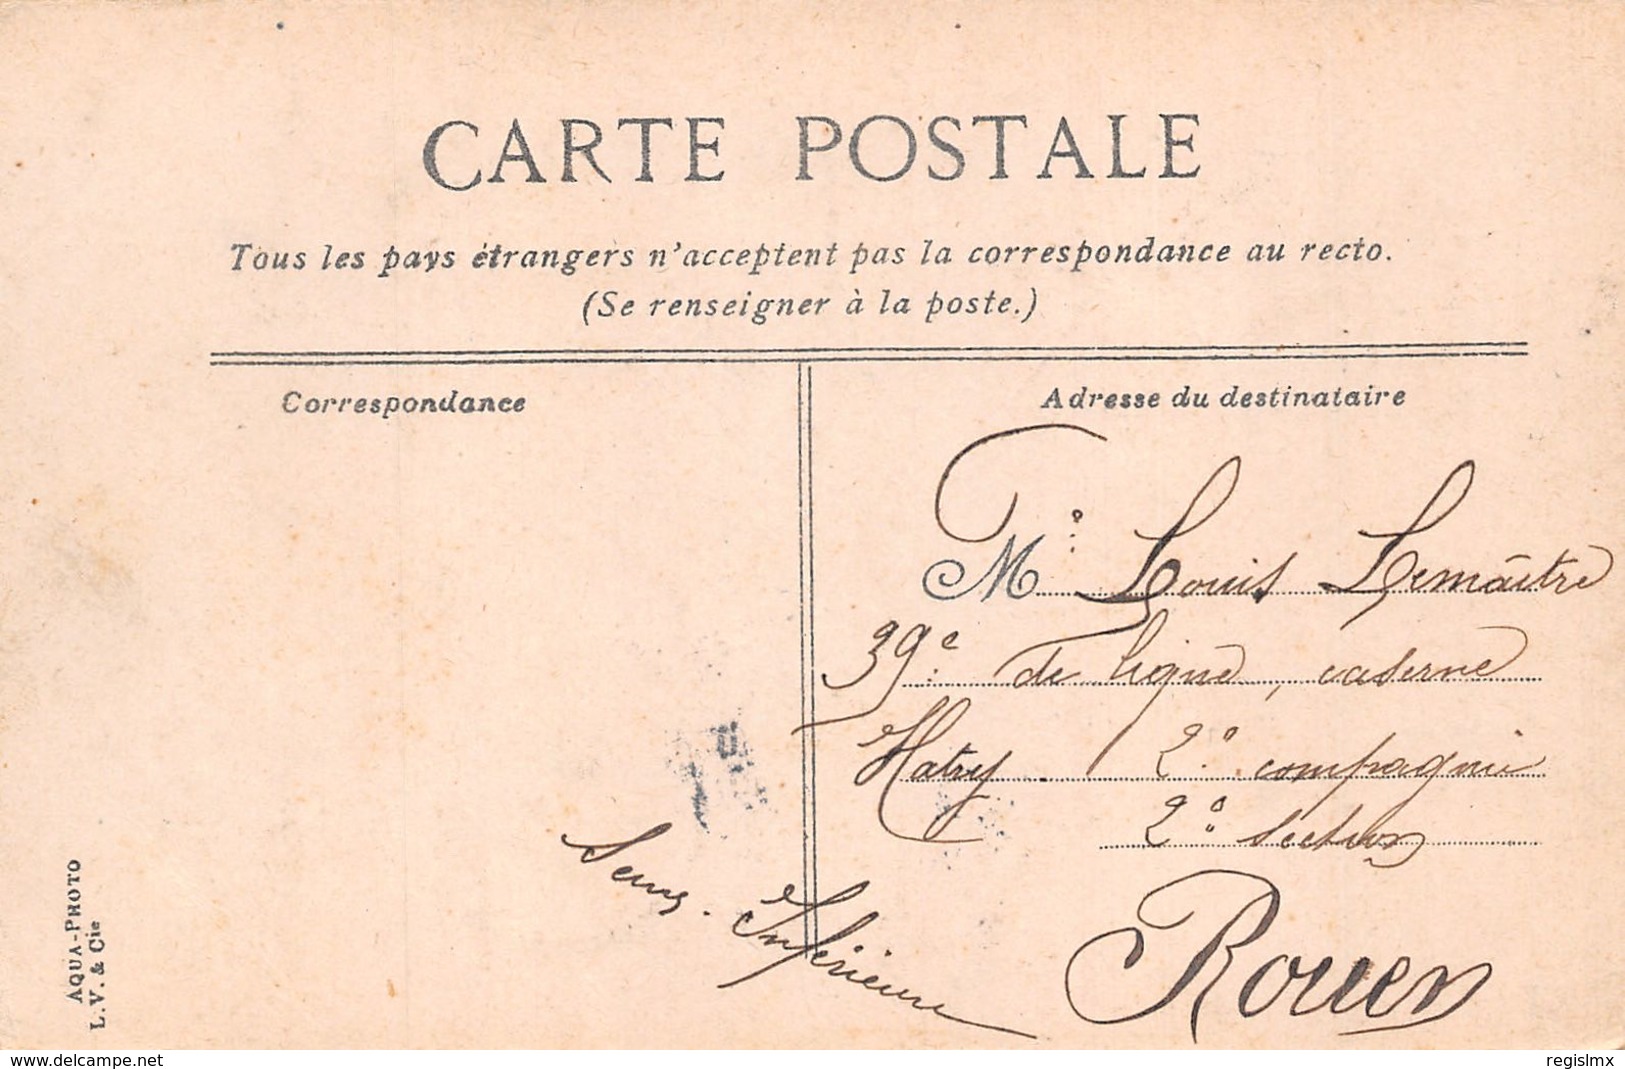 CARTE POSTALE
Tous les pays étrangers n'acceptent pas la correspondance au recto.
(Se renseigner à la poste.)
Correspondance
Adresse du destinataire
M. Louis Lemaître
39e de ligne, caserne
Hatry 2e compagnie
2e section
Rouen
Seine-Inférieure
AQUA-PHOTO
L.V. & Cie
www.delcampe.net
regislmx